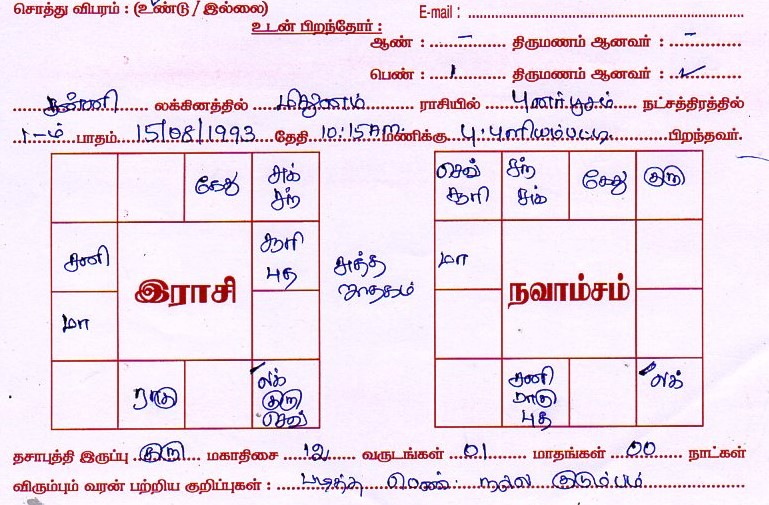 சொத்து விபரம் : (உண்டு / இல்லை)
E-mail :
உடன் பிறந்தோர் :
ஆண் : – திருமணம் ஆனவர் : –
பெண் : 1 திருமணம் ஆனவர் : ✓
கன்னி லக்கினத்தில் மிதுனம் ராசியில் புனர்பூசம் நட்சத்திரத்தில்
1-ம் பாதம் 15/08/1993 தேதி 10:15AM மணிக்கு பு.புளியம்பட்டி பிறந்தவர்.
கேது
சுக்
சந்
சனி
சூரி
புத
மா
ராகு
லக்
குரு
செவ்
இராசி
அத்த
ஜாதகம்
செவ்
சூரி
சந்
சுக்
கேது
குரு
மா
சனி
ராகு
புத
லக்
நவாம்சம்
தசாபுத்தி இருப்பு குரு மகாதிசை 12 வருடங்கள் 01 மாதங்கள் 00 நாட்கள்
விரும்பும் வரன் பற்றிய குறிப்புகள் : படித்த பெண். நல்ல குடும்பம்